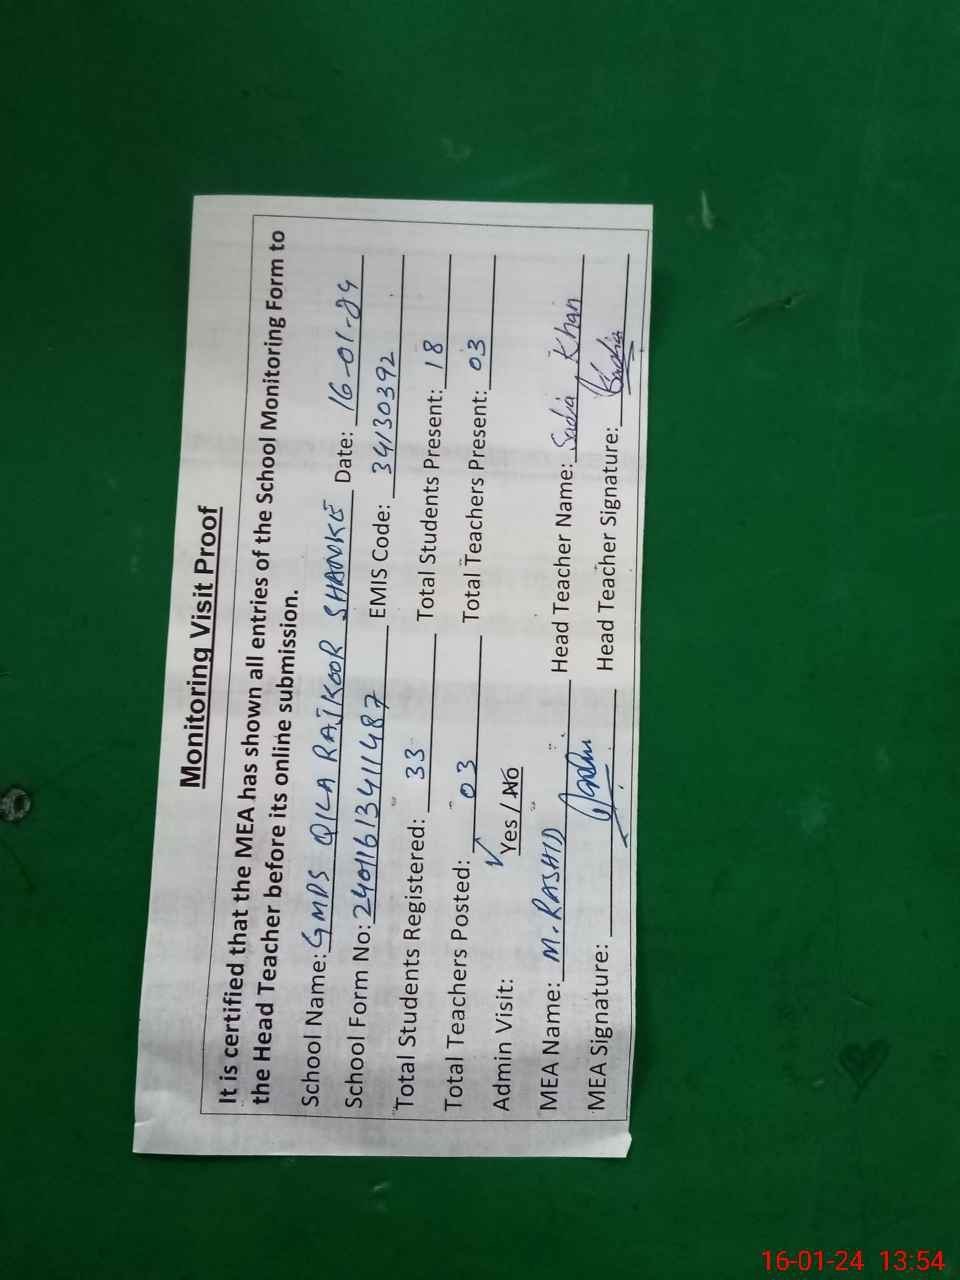 Monitoring Visit Proof
It is certified that the MEA has shown all entries of the School Monitoring Form to
the Head Teacher before its online submission.
School Name: GMPS QILA RAJKOOR SHANKE Date: 16-01-24
School Form No: 24011613411487 EMIS Code: 34130392
Total Students Registered: 33 Total Students Present: 18
Total Teachers Posted: 03 Total Teachers Present: 03
Admin Visit: Yes / No
MEA Name: M. RASHID Head Teacher Name: Sadia Khan
MEA Signature: Head Teacher Signature: Sadia
16-01-24 13:54